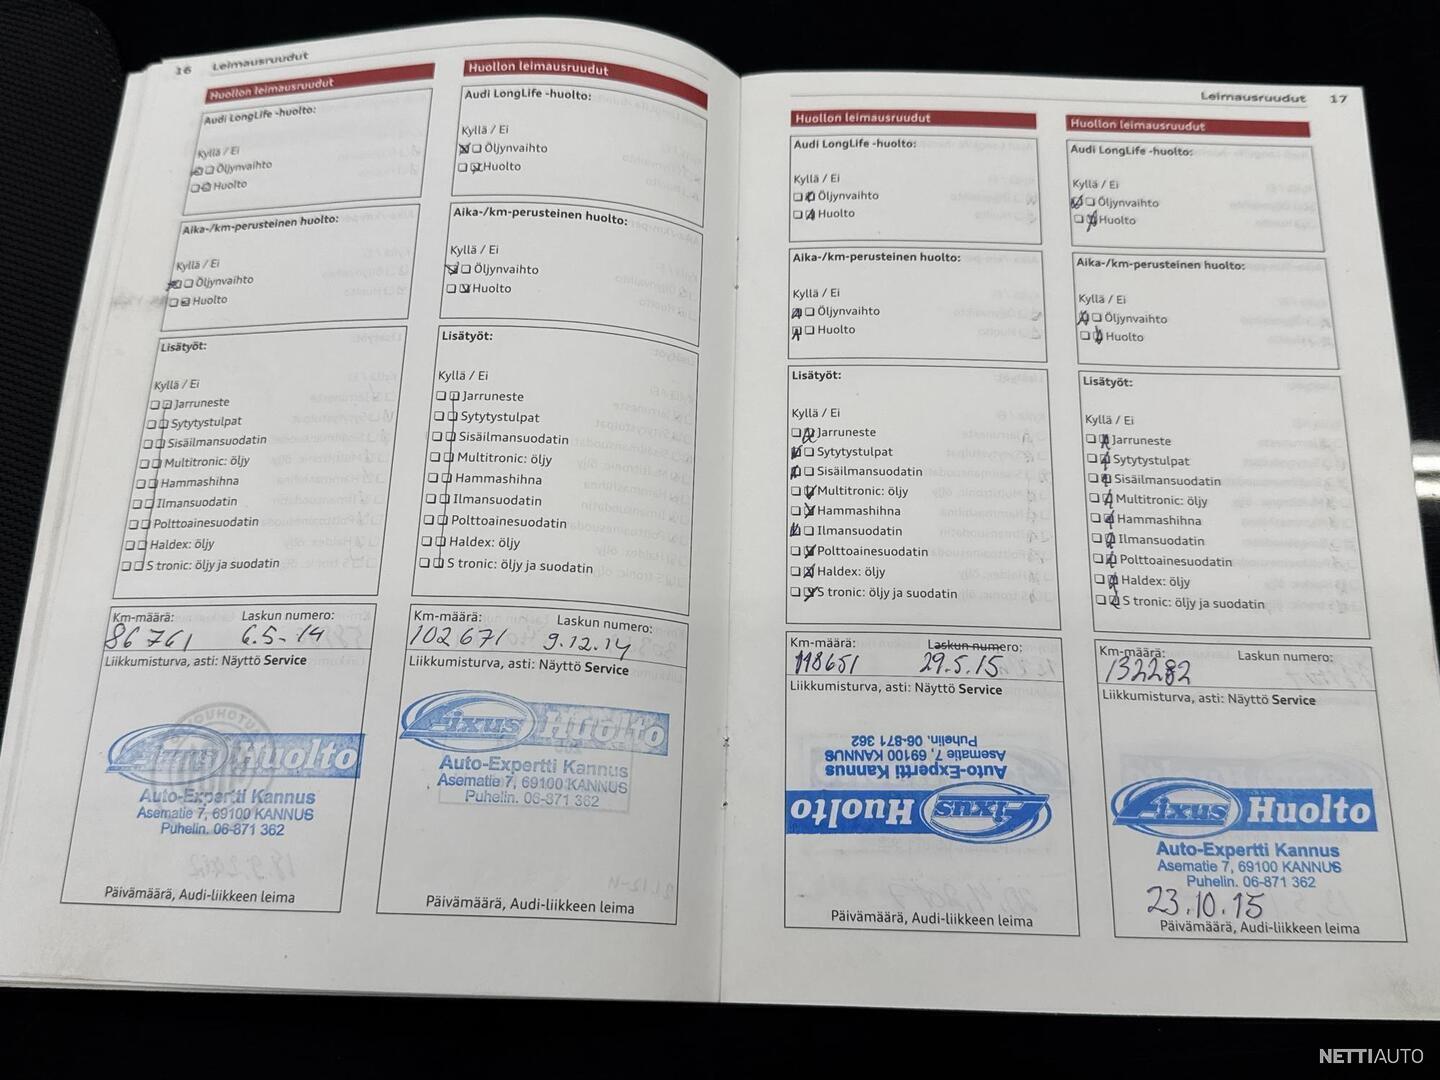 16 Leimausruudut
Huollon leimausruudut
Audi LongLife -huolto:
Kyllä / Ei
Öljynvaihto
Huolto
Aika-/km-perusteinen huolto:
Kyllä / Ei
Öljynvaihto
Huolto
Lisätyöt:
Kyllä / Ei
Jarruneste
Sytytystulpat
Sisäilmansuodatin
Multitronic: öljy
Hammashihna
Ilmansuodatin
Polttoainesuodatin
Haldex: öljy
S tronic: öljy ja suodatin
Km-määrä: Laskun numero:
86761 6.5-14
Liikkumisturva, asti: Näyttö Service
Fixus Huolto
Auto-Expertti Kannus
Asematie 7, 69100 KANNUS
Puhelin. 06-871 362
Päivämäärä, Audi-liikkeen leima
Huollon leimausruudut
Audi LongLife -huolto:
Kyllä / Ei
Öljynvaihto
Huolto
Aika-/km-perusteinen huolto:
Kyllä / Ei
Öljynvaihto
Huolto
Lisätyöt:
Kyllä / Ei
Jarruneste
Sytytystulpat
Sisäilmansuodatin
Multitronic: öljy
Hammashihna
Ilmansuodatin
Polttoainesuodatin
Haldex: öljy
S tronic: öljy ja suodatin
Km-määrä: Laskun numero:
102671 9.12.14
Liikkumisturva, asti: Näyttö Service
Fixus Huolto
Auto-Expertti Kannus
Asematie 7, 69100 KANNUS
Puhelin. 06-871 362
Päivämäärä, Audi-liikkeen leima
Leimausruudut 17
Huollon leimausruudut
Audi LongLife -huolto:
Kyllä / Ei
Öljynvaihto
Huolto
Aika-/km-perusteinen huolto:
Kyllä / Ei
Öljynvaihto
Huolto
Lisätyöt:
Kyllä / Ei
Jarruneste
Sytytystulpat
Sisäilmansuodatin
Multitronic: öljy
Hammashihna
Ilmansuodatin
Polttoainesuodatin
Haldex: öljy
S tronic: öljy ja suodatin
Km-määrä: Laskun numero:
118651 29.5.15
Liikkumisturva, asti: Näyttö Service
Fixus Huolto
Auto-Expertti Kannus
Asematie 7, 69100 KANNUS
Puhelin. 06-871 362
Päivämäärä, Audi-liikkeen leima
Huollon leimausruudut
Audi LongLife -huolto:
Kyllä / Ei
Öljynvaihto
Huolto
Aika-/km-perusteinen huolto:
Kyllä / Ei
Öljynvaihto
Huolto
Lisätyöt:
Kyllä / Ei
Jarruneste
Sytytystulpat
Sisäilmansuodatin
Multitronic: öljy
Hammashihna
Ilmansuodatin
Polttoainesuodatin
Haldex: öljy
S tronic: öljy ja suodatin
Km-määrä: Laskun numero:
132282
Liikkumisturva, asti: Näyttö Service
Fixus Huolto
Auto-Expertti Kannus
Asematie 7, 69100 KANNUS
Puhelin. 06-871 362
23.10.15
Päivämäärä, Audi-liikkeen leima
NETTIAUTO